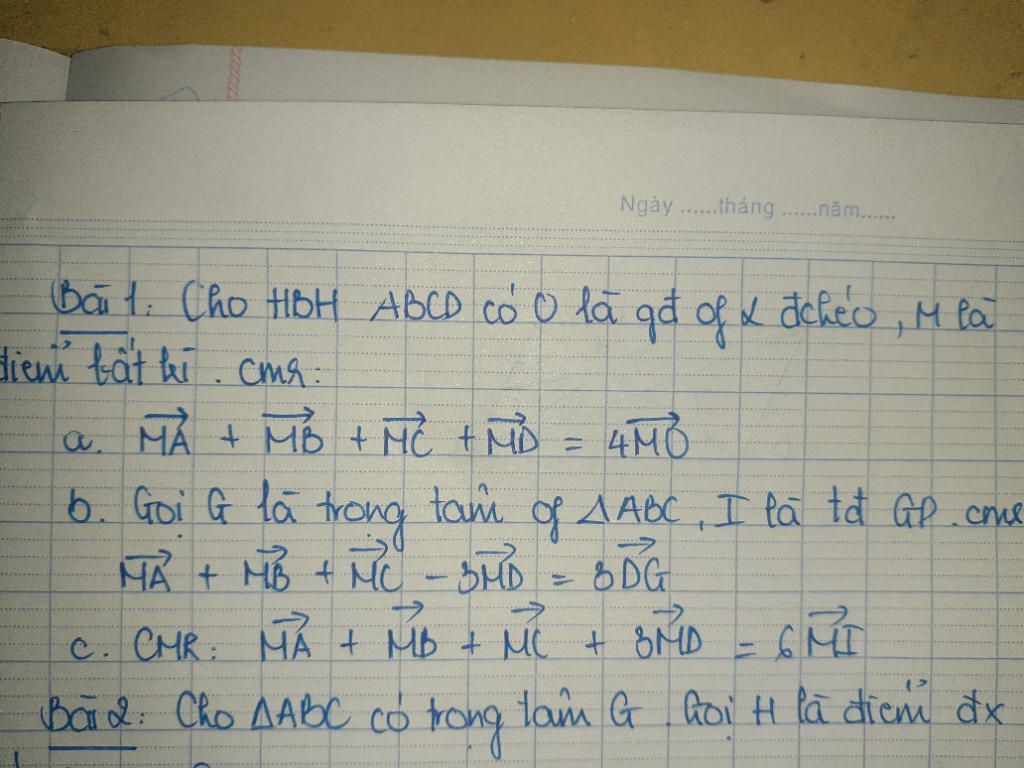 Ngày ......tháng ......năm......
Bài 1: Cho HBH ABCD có O là gđ of 2 đchéo, M là
điểm bất kì. cmr:
a. MA + MB + MC + MD = 4MO
b. Gọi G là trọng tâm of ΔABC, I là tđ GD. cmr
MA + MB + MC - 3MD = 3DG
c. CMR: MA + MB + MC + 3MD = 6MI
Bài 2: Cho ΔABC có trọng tâm G. Gọi H là điểm đx